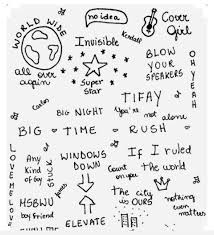 WORLD WIDE
no idea
Cover
Girl
Invisible
Kendall
all over
again
Super
Star
BLOW
YOUR
SPEAKERS
OH YEAH
Carlos
BIG NIGHT
TIFAY
You're not alone
BIG TIME RUSH
LOVE ME LOVE
Any
Kind
of by
STUCK
WINDOWS
DOWN
If I ruled
the world
Count
on you
James
HSBWU
boy friend
ELEVATE
The city
is OURS
nothing
even
matters